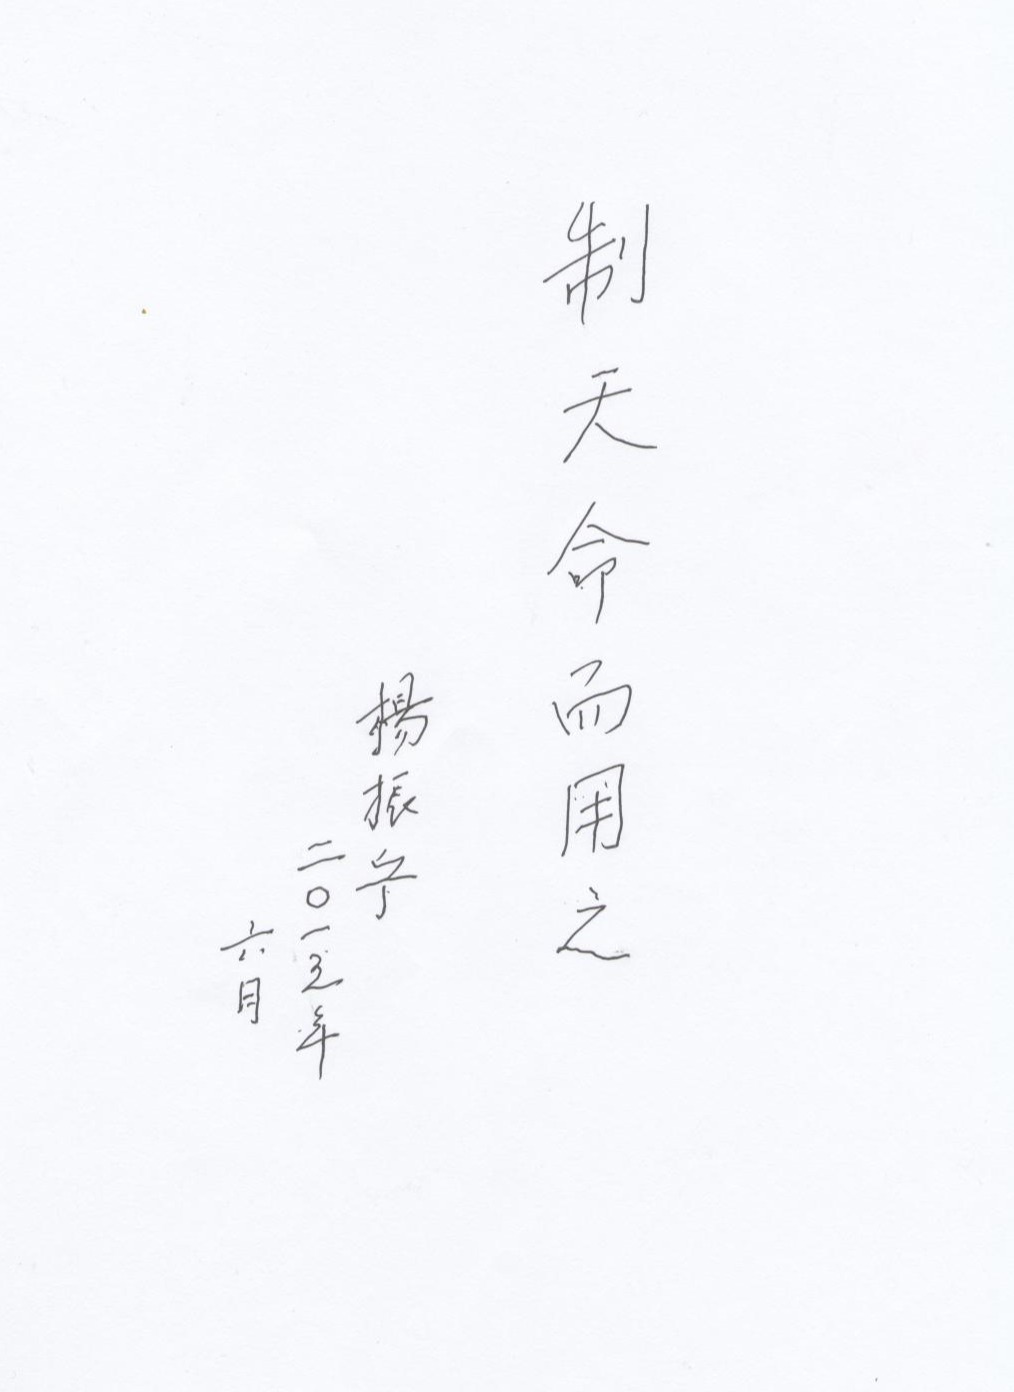 制天命而用之
楊振宁
二〇一五年
六月